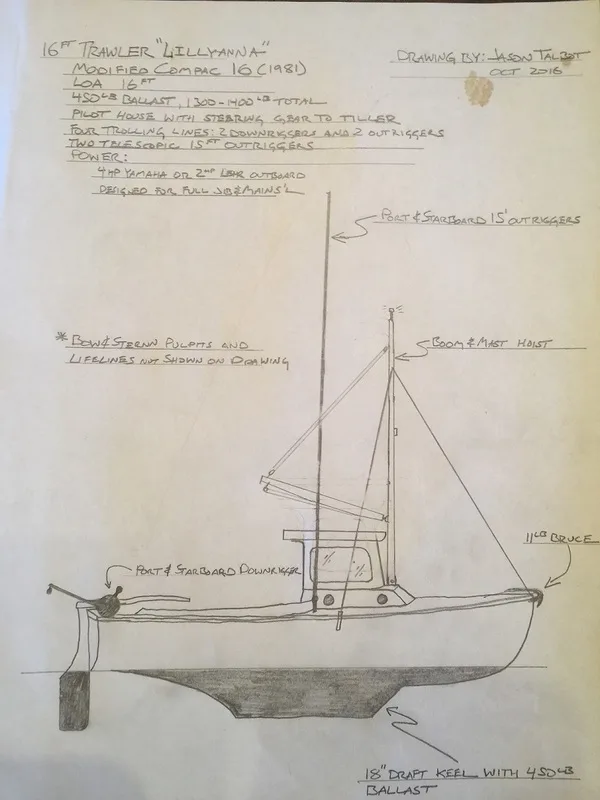 16FT TRAWLER "LILLYANNA"
MODIFIED COMPAC 16 (1981)
LOA 16FT
450LB BALLAST, 1300-1400LB TOTAL
PILOT HOUSE WITH STEERING GEAR TO TILLER
FOUR TROLLING LINES: 2 DOWNRIGGERS AND 2 OUTRIGGERS
TWO TELESCOPIC 15FT OUTRIGGERS
POWER:
4HP YAMAHA OR 2HP LEHR OUTBOARD
DESIGNED FOR FULL JIB & MAINS'L
DRAWING BY: JASON TALBOT
OCT 2016
PORT & STARBOARD 15' OUTRIGGERS
* BOW & STERNN PULPITS AND
LIFELINES NOT SHOWN ON DRAWING
BOOM & MAST HOIST
11LB BRUCE
PORT & STARBOARD DOWNRIGGER
18" DRAFT KEEL WITH 450LB
BALLAST